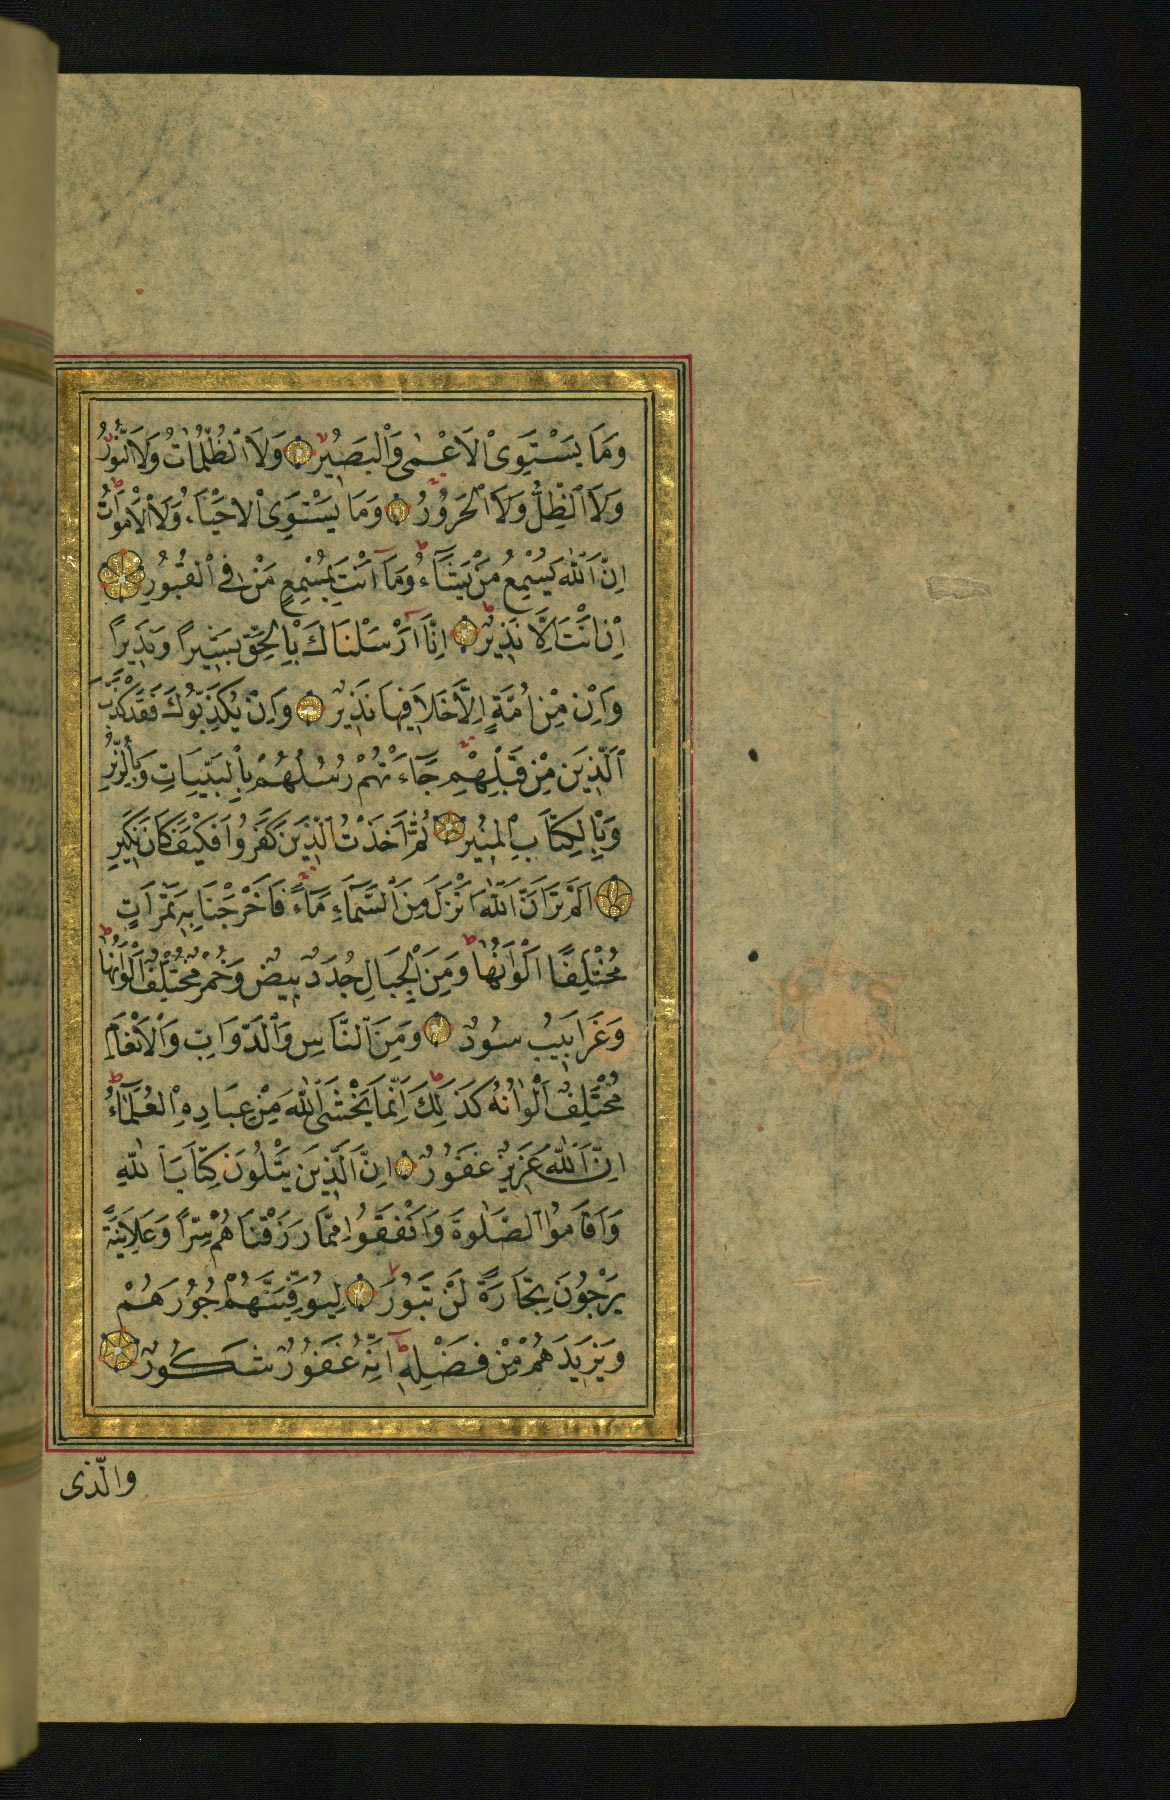 وَمَا يَسْتَوِى الْاَعْمٰى وَالْبَصِيرُ وَلَا الظُّلُمَاتُ وَلَا النُّورُ
وَلَا الظِّلُّ وَلَا الْحَرُورُ وَمَا يَسْتَوِى الْاَحْيَاءُ وَلَا الْاَمْوَاتُ
اِنَّ اللّٰهَ يُسْمِعُ مَنْ يَشَاءُ وَمَا اَنْتَ بِمُسْمِعٍ مَنْ فِى الْقُبُورِ
اِنْ اَنْتَ اِلَّا نَذِيرٌ اِنَّا اَرْسَلْنَاكَ بِالْحَقِّ بَشِيرًا وَنَذِيرًا
وَاِنْ مِنْ اُمَّةٍ اِلَّا خَلَا فِيهَا نَذِيرٌ وَاِنْ يُكَذِّبُوكَ فَقَدْ كَذَّبَ
الَّذِينَ مِنْ قَبْلِهِمْ جَاءَتْهُمْ رُسُلُهُمْ بِالْبَيِّنَاتِ وَبِالزُّبُرِ
وَبِالْكِتَابِ الْمُنِيرِ ثُمَّ اَخَذْتُ الَّذِينَ كَفَرُوا فَكَيْفَ كَانَ نَكِيرِ
اَلَمْ تَرَ اَنَّ اللّٰهَ اَنْزَلَ مِنَ السَّمَاءِ مَاءً فَاَخْرَجْنَا بِهِ ثَمَرَاتٍ
مُخْتَلِفًا اَلْوَانُهَا وَمِنَ الْجِبَالِ جُدَدٌ بِيضٌ وَحُمْرٌ مُخْتَلِفٌ اَلْوَانُهَا
وَغَرَابِيبُ سُودٌ وَمِنَ النَّاسِ وَالدَّوَابِّ وَالْاَنْعَامِ
مُخْتَلِفٌ اَلْوَانُهُ كَذٰلِكَ اِنَّمَا يَخْشَى اللّٰهَ مِنْ عِبَادِهِ الْعُلَمَاءُ
اِنَّ اللّٰهَ عَزِيزٌ غَفُورٌ اِنَّ الَّذِينَ يَتْلُونَ كِتَابَ اللّٰهِ
وَاَقَامُوا الصَّلٰوةَ وَاَنْفَقُوا مِمَّا رَزَقْنَاهُمْ سِرًّا وَعَلَانِيَةً
يَرْجُونَ تِجَارَةً لَنْ تَبُورَ لِيُوَفِّيَهُمْ اُجُورَهُمْ
وَيَزِيدَهُمْ مِنْ فَضْلِهِ اِنَّهُ غَفُورٌ شَكُورٌ
والّذى